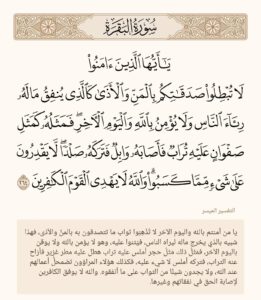 سُورَةُ البَقَرَةِ
يَٰٓأَيُّهَا ٱلَّذِينَ ءَامَنُوا۟
لَا تُبْطِلُوا۟ صَدَقَٰتِكُم بِٱلْمَنِّ وَٱلْأَذَىٰ كَٱلَّذِى يُنفِقُ مَالَهُۥ
رِئَآءَ ٱلنَّاسِ وَلَا يُؤْمِنُ بِٱللَّهِ وَٱلْيَوْمِ ٱلْءَاخِرِ ۖ فَمَثَلُهُۥ كَمَثَلِ
صَفْوَانٍ عَلَيْهِ تُرَابٌ فَأَصَابَهُۥ وَابِلٌ فَتَرَكَهُۥ صَلْدًا ۖ لَّا يَقْدِرُونَ
عَلَىٰ شَىْءٍ مِّمَّا كَسَبُوا۟ ۗ وَٱللَّهُ لَا يَهْدِى ٱلْقَوْمَ ٱلْكَٰفِرِينَ ٢٦٤
التفسير الميسر
يا من آمنتم بالله واليوم الآخر لا تُذْهِبوا ثواب ما تتصدقون به بالمنِّ والأذى، فهذا
شبيه بالذي يخرج ماله ليراه الناس، فيُثنوا عليه، وهو لا يؤمن بالله ولا يوقن
باليوم الآخر، فمثل ذلك مثل حجر أملس عليه تراب هطل عليه مطر غزير فأزاح
عنه التراب، فتركه أملس لا شيء عليه، فكذلك هؤلاء المراؤون تضمحلُّ أعمالهم
عند الله، ولا يجدون شيئًا من الثواب على ما أنفقوه. والله لا يوفق الكافرين
لإصابة الحق في نفقاتهم وغيرها.